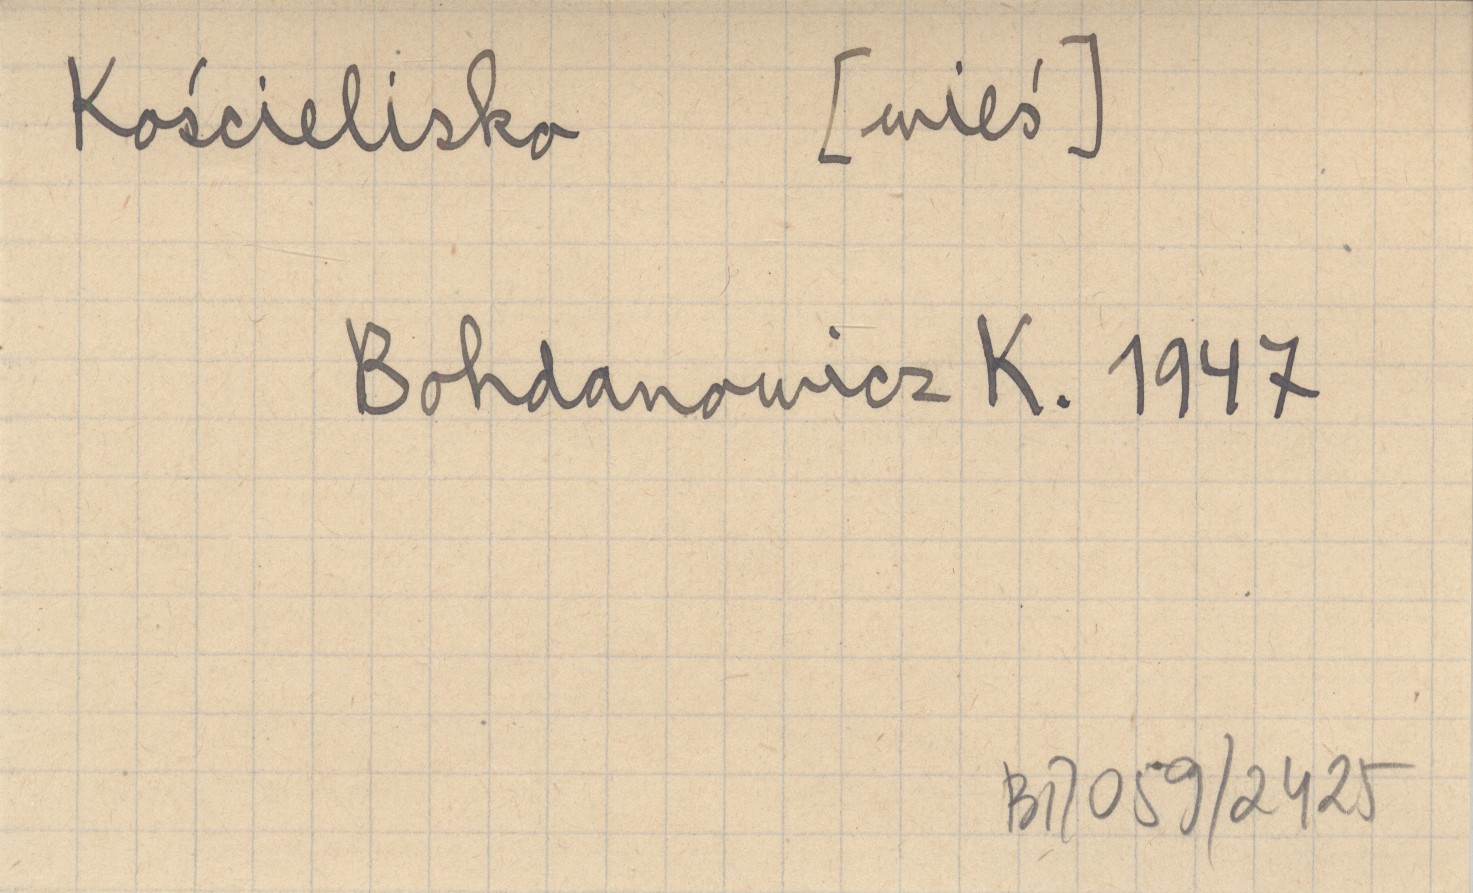 Kościelisko [wieś]
Bohdanowicz K. 1947
059/2425